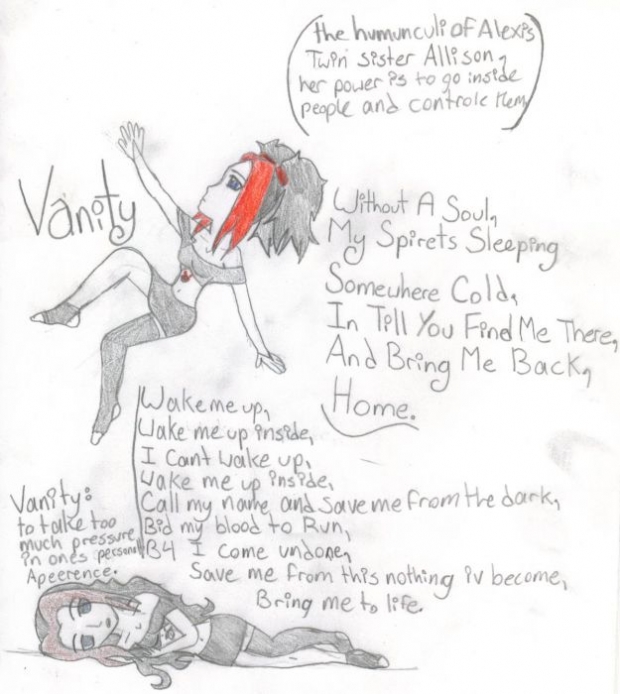 (the humunculi of Alexis
Twin sister Allison,
her power is to go inside
people and controle them)
Vanity
Without A Soul,
My Spirets Sleeping
Somewhere Cold,
In Till You Find Me There,
And Bring Me Back,
Home.
Wake me up,
Wake me up inside,
I Cant Wake up,
Wake me up inside,
Call my name and save me from the dark,
Bid my blood to Run,
B4 I come undone,
Save me from this nothing iv become,
Bring me to life.
Vanity:
to take too
much pressure
in ones personal
Apeerence.